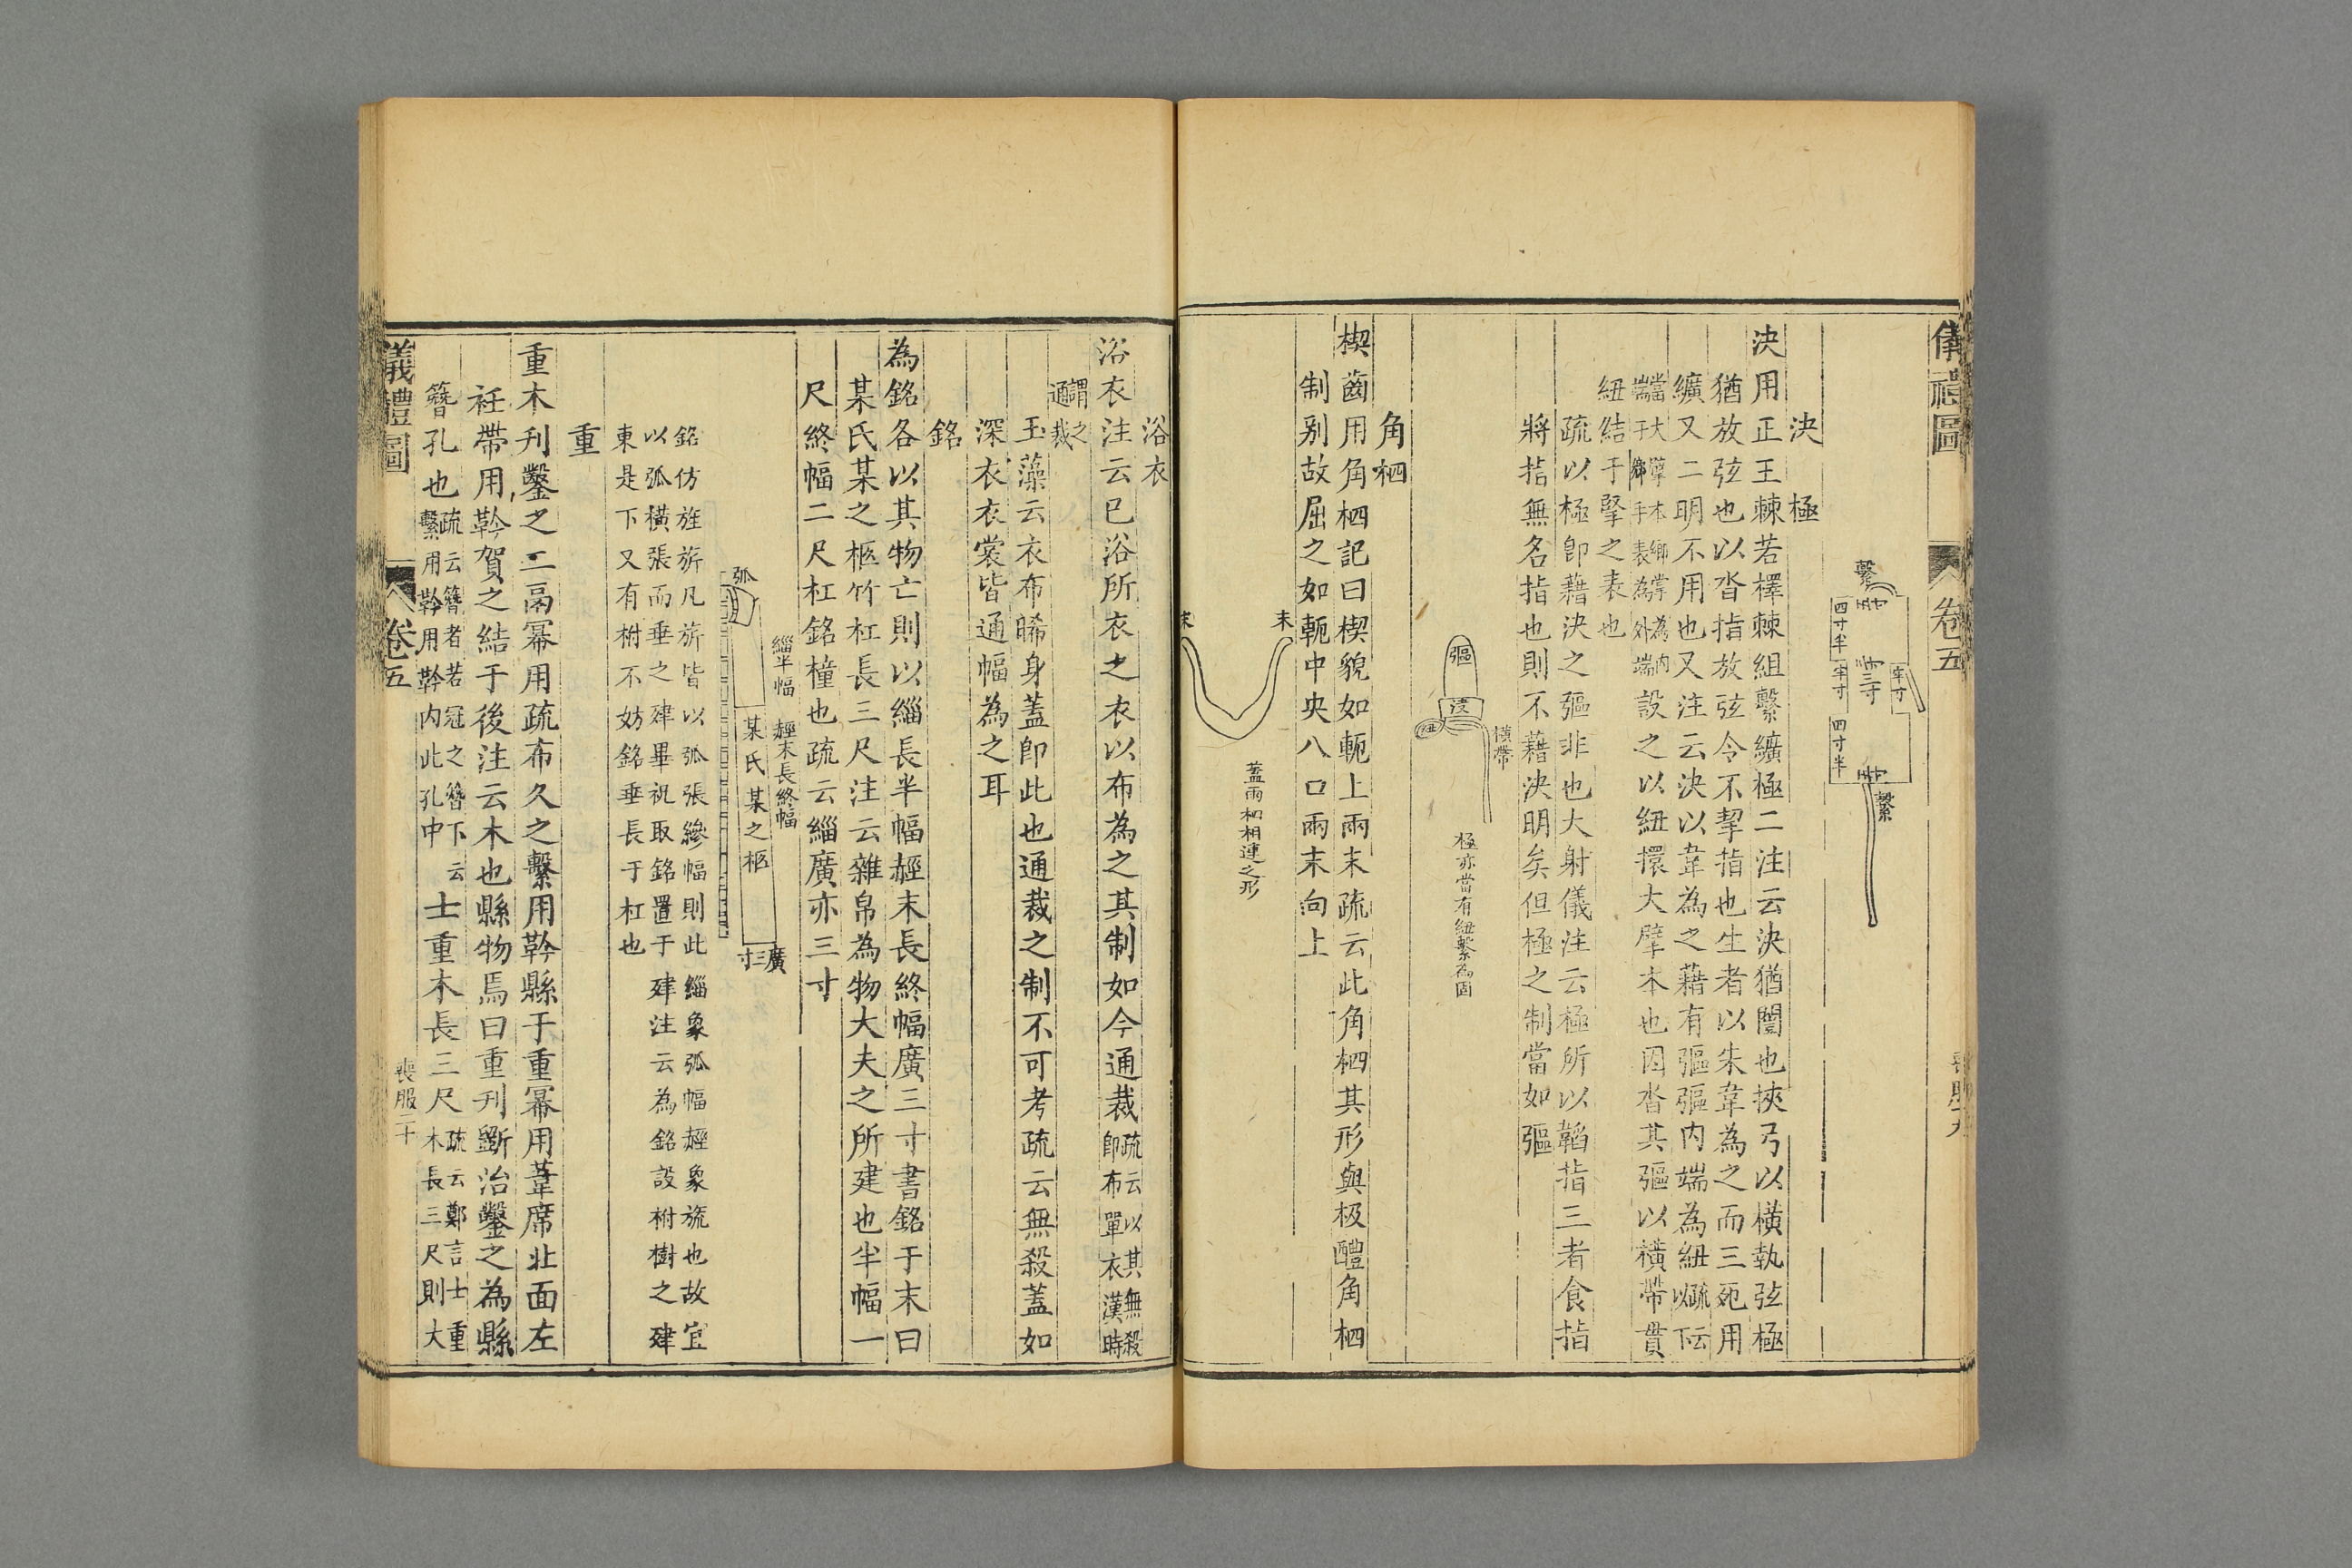 儀禮圖 卷五 喪服
繫
四寸半
牢寸
三寸
牢寸
四寸半
繫
決 極
決用正王棘若檡棘組繫纊極二注云決猶闓也挾弓以橫執弦極
猶放弦也以沓指放弦令不挈指也生者以朱韋為之而三死用
纊又二明不用也又注云決以韋為之藉有彄彄內端為紐
疏云以下
當大擘本鄉掌為內
端于鄉手表為外端
設之以紐擐大擘本也因沓其彄以橫帶貫
紐結于掔之表也
疏以極即藉決之彄非也大射儀注云極所以韜指三者食指
將指無名指也則不藉決明矣但極之制當如彄
彄
紐
橫帶
極亦當有紐繫為固
角柶
楔齒用角柶記曰楔貌如軛上兩末疏云此角柶其形與扱醴角柶
制别故屈之如軛中央入口兩末向上
末
末
蓋兩柶相連之形
浴衣
浴衣注云已浴所衣之衣以布為之其制如今通裁
疏云以其無殺
即布單衣漢時
謂之
通裁
玉藻云衣布晞身蓋即此也通裁之制不可考疏云無殺蓋如
深衣衣裳皆通幅為之耳
銘
為銘各以其物亡則以緇長半幅䞓末長終幅廣三寸書銘于末曰
某氏某之柩竹杠長三尺注云雜帛為物大夫之所建也半幅一
尺終幅二尺杠銘橦也疏云緇廣亦三寸
弧
緇半幅 䞓末長終幅
某氏某之柩
廣三寸
銘仿旌旂凡旂皆以弧張縿幅則此緇象弧幅䞓象旒也故宜
以弧橫張而垂之建畢祝取銘置于建注云為銘設柎樹之建
東是下又有柎不妨銘垂長于杠也
重
重木刋鑿之二鬲冪用疏布久之繫用靲縣于重冪用葦席北面左
衽帶用靲賀之結于後注云木也縣物焉曰重刋斲治鑿之為縣
簪孔也
疏云簪者若冠之簪下云
繫用靲用靲內此孔中
士重木長三尺
疏云鄭言士重
木長三尺則大
儀禮圖 卷五 喪服二十